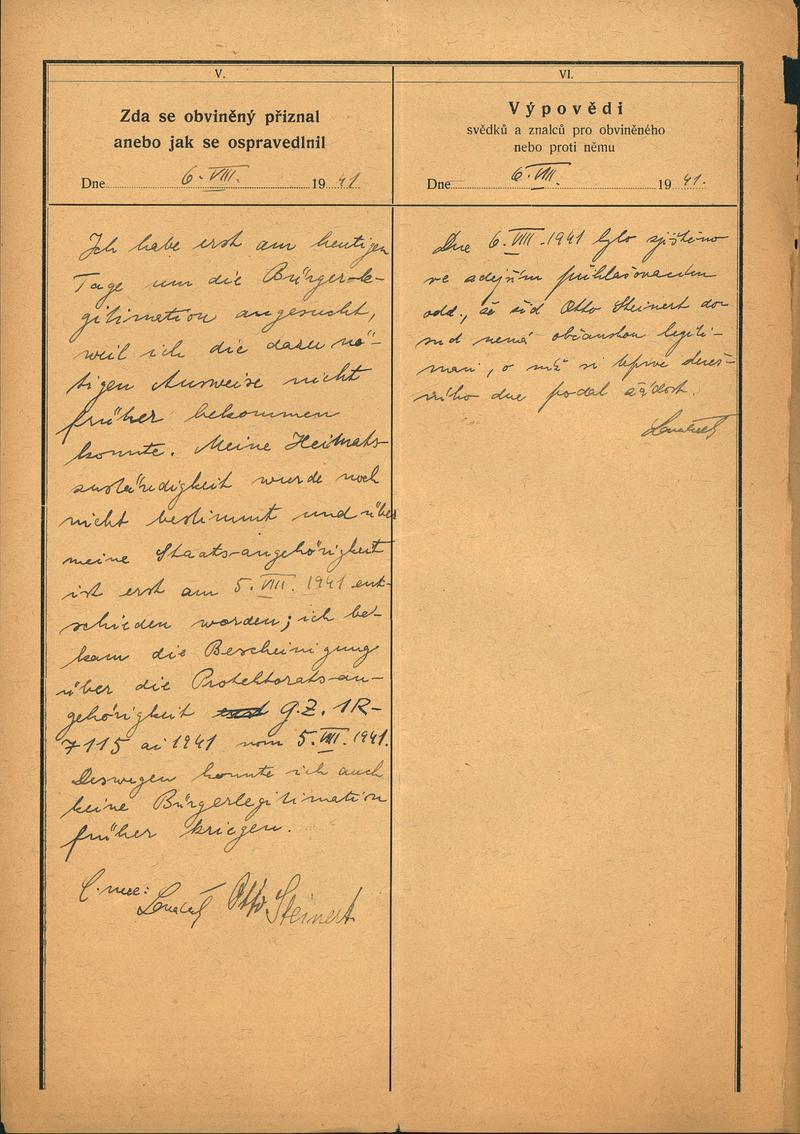 V.
Zda se obviněný přiznal
anebo jak se ospravedlnil
Dne 6. VIII. 19 41
Ich habe erst am heutigen
Tage um die Bürger-le-
gitimation angesucht,
weil ich die dazu nö-
tigen Ausweise nicht
früher bekommen
konnte. Meine Heimats-
zuständigkeit wurde noch
nicht bestimmt und über
meine Staats-angehörigkeit
ist erst am 5. VIII. 1941 ent-
schieden worden; ich be-
kam die Bescheinigung
über die Protektorats-an-
gehörigkeit G.Z. 1R-
7115 ai 1941 vom 5. VIII. 1941.
Deswegen konnte ich auch
keine Bürgerlegitimation
früher kriegen.
Otto Steinert
VI.
Výpovědi
svědků a znalců pro obviněného
nebo proti němu
Dne 6. VIII. 19 41.
Dne 6. VIII. 1941 bylo zjištěno
ve zdejším přihlašovacím
odd., že žid Otto Steinert do-
sud nemá občanskou legiti-
maci, o niž si teprve dneš-
ního dne podal žádost.